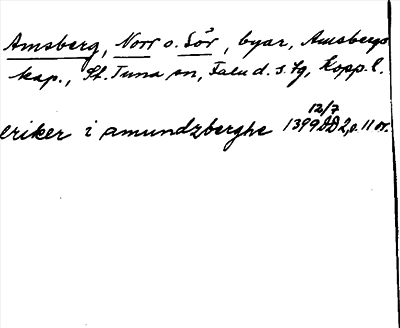 Amsberg, Norr o. Sör, byar, Amsbergs
kap., St. Tuna sn, Falu d. s. fg, Kopp. l.
12/7
eriker i amundzberghe 1399 DD 2, o. 11 or.